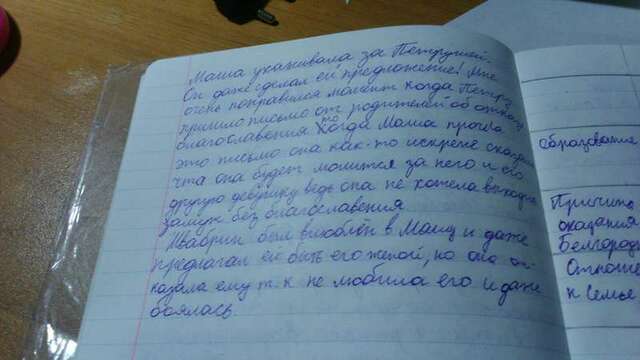 Маша ухаживала за Петрушей.
Он даже сделал ей предложение! Мне
очень понравился момент когда Петру
пришло письмо от родителей об отказе
благославения то Когда Маша прочла
это письмо она как-то искрене сказала
что она будет молится за него и его
другую девушку ведь она не хотела выходить
замуж без благославения.
Швабрин был влюблён в Машу и даже
предлагал ей быть его женой, но она от-
казала ему т.к. не любила его и даже
боялась.
образования
Причина
оказания
Белгород
Отноше
к семье